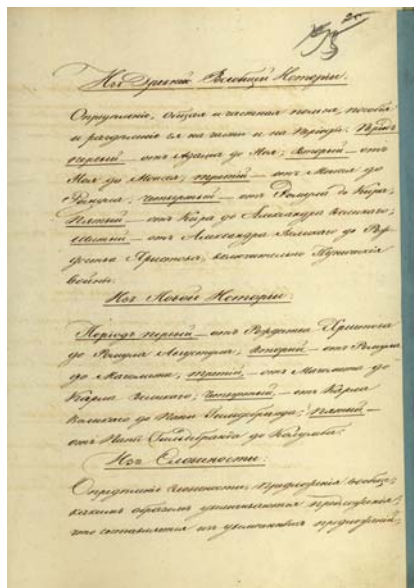 Изъ Древней Всеобщей Исторіи.
Опредѣленіе, общая и частная польза, пособія
и раздѣленіе ея на части и на періоды. Періодъ
первый — отъ Адама до Ноя; второй — отъ
Ноя до Моисея; третій — отъ Моисея до
Ромула; четвертый — отъ Ромула до Кира;
пятый — отъ Кира до Александра Великаго;
шестый — отъ Александра Великаго до Рож-
дества Христова, включительно Пуническія
войны.
Изъ Новой Исторіи:
Періодъ первый — отъ Рождества Христова
до Ромула Августула; второй — отъ Ромула
до Магомета; третій — отъ Магомета до
Карла Великаго; четвертый — отъ Карла
Великаго до Папы Гильдебранда; пятый —
отъ Папы Гильдебранда до Колумба.
Изъ Словесности:
Опредѣленіе словесности, предложенія вообще,
какимъ образомъ увеличиваются предложенія,
что составляется изъ увеличенія предложеній,